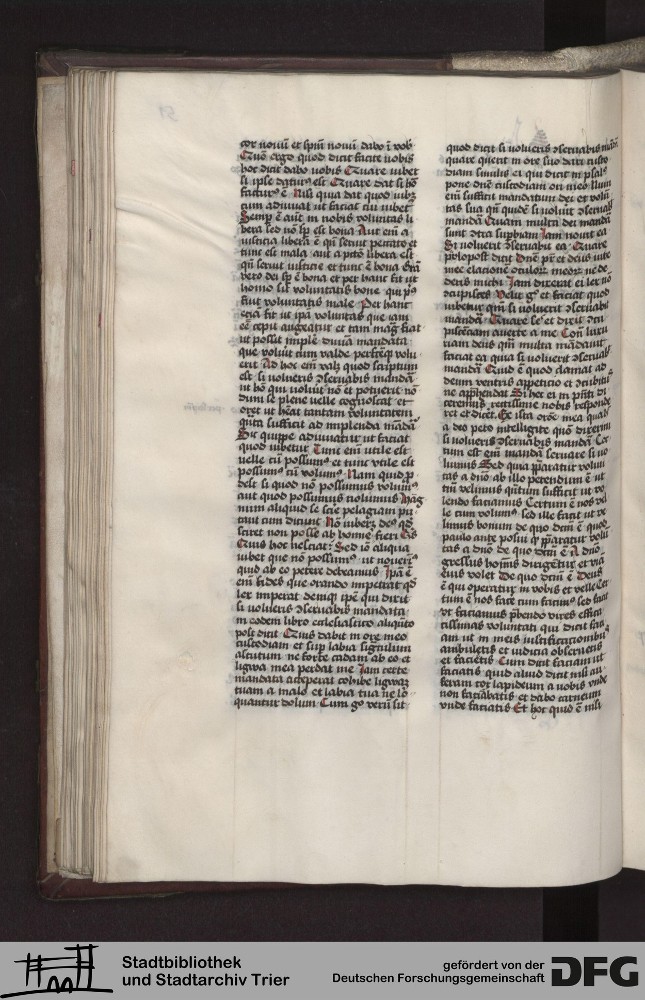 cor nouū et spm̄ nouū dabo ī vob
Quō ergo quod dicit facite uobis
hoc dicit dabo uobis Quare iubet
si ipse daturꝰ est Quare dat si hō
facturꝰ ē Nisi quia dat quod iubꝫ
cum adiuuat ut faciat cui iubet
Semp̄ ē aūt in nobis voluntas li
bera sed nō sp̄ est bona Aut em̄ a
iusticia libera ē qn̄ seruit peccato et
tunc est mala aut a pctō libera est
qn̄ seruit iusticie et tunc ē bona Grā
vero dei sp̄ ē bona et per hanc fit ut
homo sit voluntatis bone qui pͥꝰ
fuit voluntatis male Per hanc
ecia fit ut ipa voluntas que iam
ēē cepit augeatur et tam mag fiat
ut possit implē diuīa mandata
que voluit cum valde perfcēqꝫ volu
erit Ad hoc em̄ valꝫ quod scriptum
est si volueris ɔseruabis mandata
ut hō qui voluit nō et potuerit nō
dum se plene velle cognoscat et
oret ut hēat tantam voluntatem
quāta sufficit ad implenda mādā
Sic quippe adiuuatur ut faciat
quod iubetur Tunc em̄ utile est
velle cū possumꝰ et tunc vtile est
possumꝰ cū volumꝰ Nam quid p
dest si quod nō possumus volumꝰ
aut quod possumus nolumus Mag
num aliquid se scīe pelagiani pu
tant cum dicunt Nō iuberꝫ deꝰ qd
sciret non posse ab homīe fieri
Quis hoc nesciat Sed iō aliqua
iubet que nō possumꝰ ut nouerīꝰ
quid ab eo petere debeamus Ipā ē
em̄ fides que orando impetrat qd
lex imperat Deniqꝫ ipē qui dixit
si volueris ɔseruabis mandata
in eodem libro ecclesiastico aliquāto
post dicit Quis dabit in ore meo
custodiam et sup labia signaculum
astutum ne forte cadam ab eo et
ligwa mea perdat me Iam certe
mandata acceperat cohibe ligwaꝫ
tuam a malo et labia tua ne lo
quantur dolum Cum gͦ verū sit
quod dicit si volueris ɔseruabis mādā
quare querit in ore suo dari custo
diam similis ei qui dicit in psalͦ
pone dn̄e custodiam ori meo Num
em̄ sufficit mandatum dei et volū
tas sua qn̄ quidē si voluit ɔseruaꝫ
mandā Quam multa dei mandā
sunt ɔtra supbiam Iam nouit ea
Si voluerit ɔseruabit ea Quare
ꝓlopost dicit Dn̄e pr̄ et deus vite
mee elacionē oculoꝝ meoꝝ ne de
deris michi Iam dixerat ei lex nō
ɔcupisces Velit gͦ et faciat quod
iubetur qm̄ si voluerit ɔseruabit
mandā Quare seͥ et dicit ɔcu
piscēciam auerte a me Con̄ luxu
riam deus qm̄ multa mādauit
faciat ea quia si voluerit ɔseruabͭ
mandā Quid ē quod clamat ad
deum ventris appeticio et ɔcubitꝰ
ne apphendat Si hec ei in pn̄ti di
ceremus rectissime nobis responde
ret et dicēt Ex ista orōe mea quaꝫ
a deo peto intelligite quō dixerim
si volueris ɔseruabis mandā Cer
tum est em̄ mandā seruare si vo
lumus Sed quia p̄paratur volun
tas a dn̄o ab illo petendum ē ut
tm̄ velimus qn̄tum sufficit ut vo
lendo faciamus Certum ē nos vel
le cum volumꝰ sed ille facit ut ve
limus bonum de quo dcm̄ ē quod
paulo ante posui qͥ p̄paratur volū
tas a dn̄o de quo dcm̄ ē A dn̄o
gressus hoīnis dirigētur et viā
eius volet De quo dcm̄ ē Deus
ē qui operatur in vobis et velle Cer
tum ē nos facē cum facimꝰ sed facit
ut faciamus p̄bendo vires effica
cissimas voluntati qui dicit faci
am ut in meis iustificacionibꝰ
ambuletis et iudicia obseruetis
et facietis Cum dicit faciam ut
faciatis quid aliud dicit nisi au
feram cor lapideum a vobis vnde
non faciebatis et dabo carneum
vnde faciatis Et hoc quid ē nisi
Stadtbibliothek
und Stadtarchiv Trier
gefördert von der
Deutschen Forschungsgemeinschaft
DFG